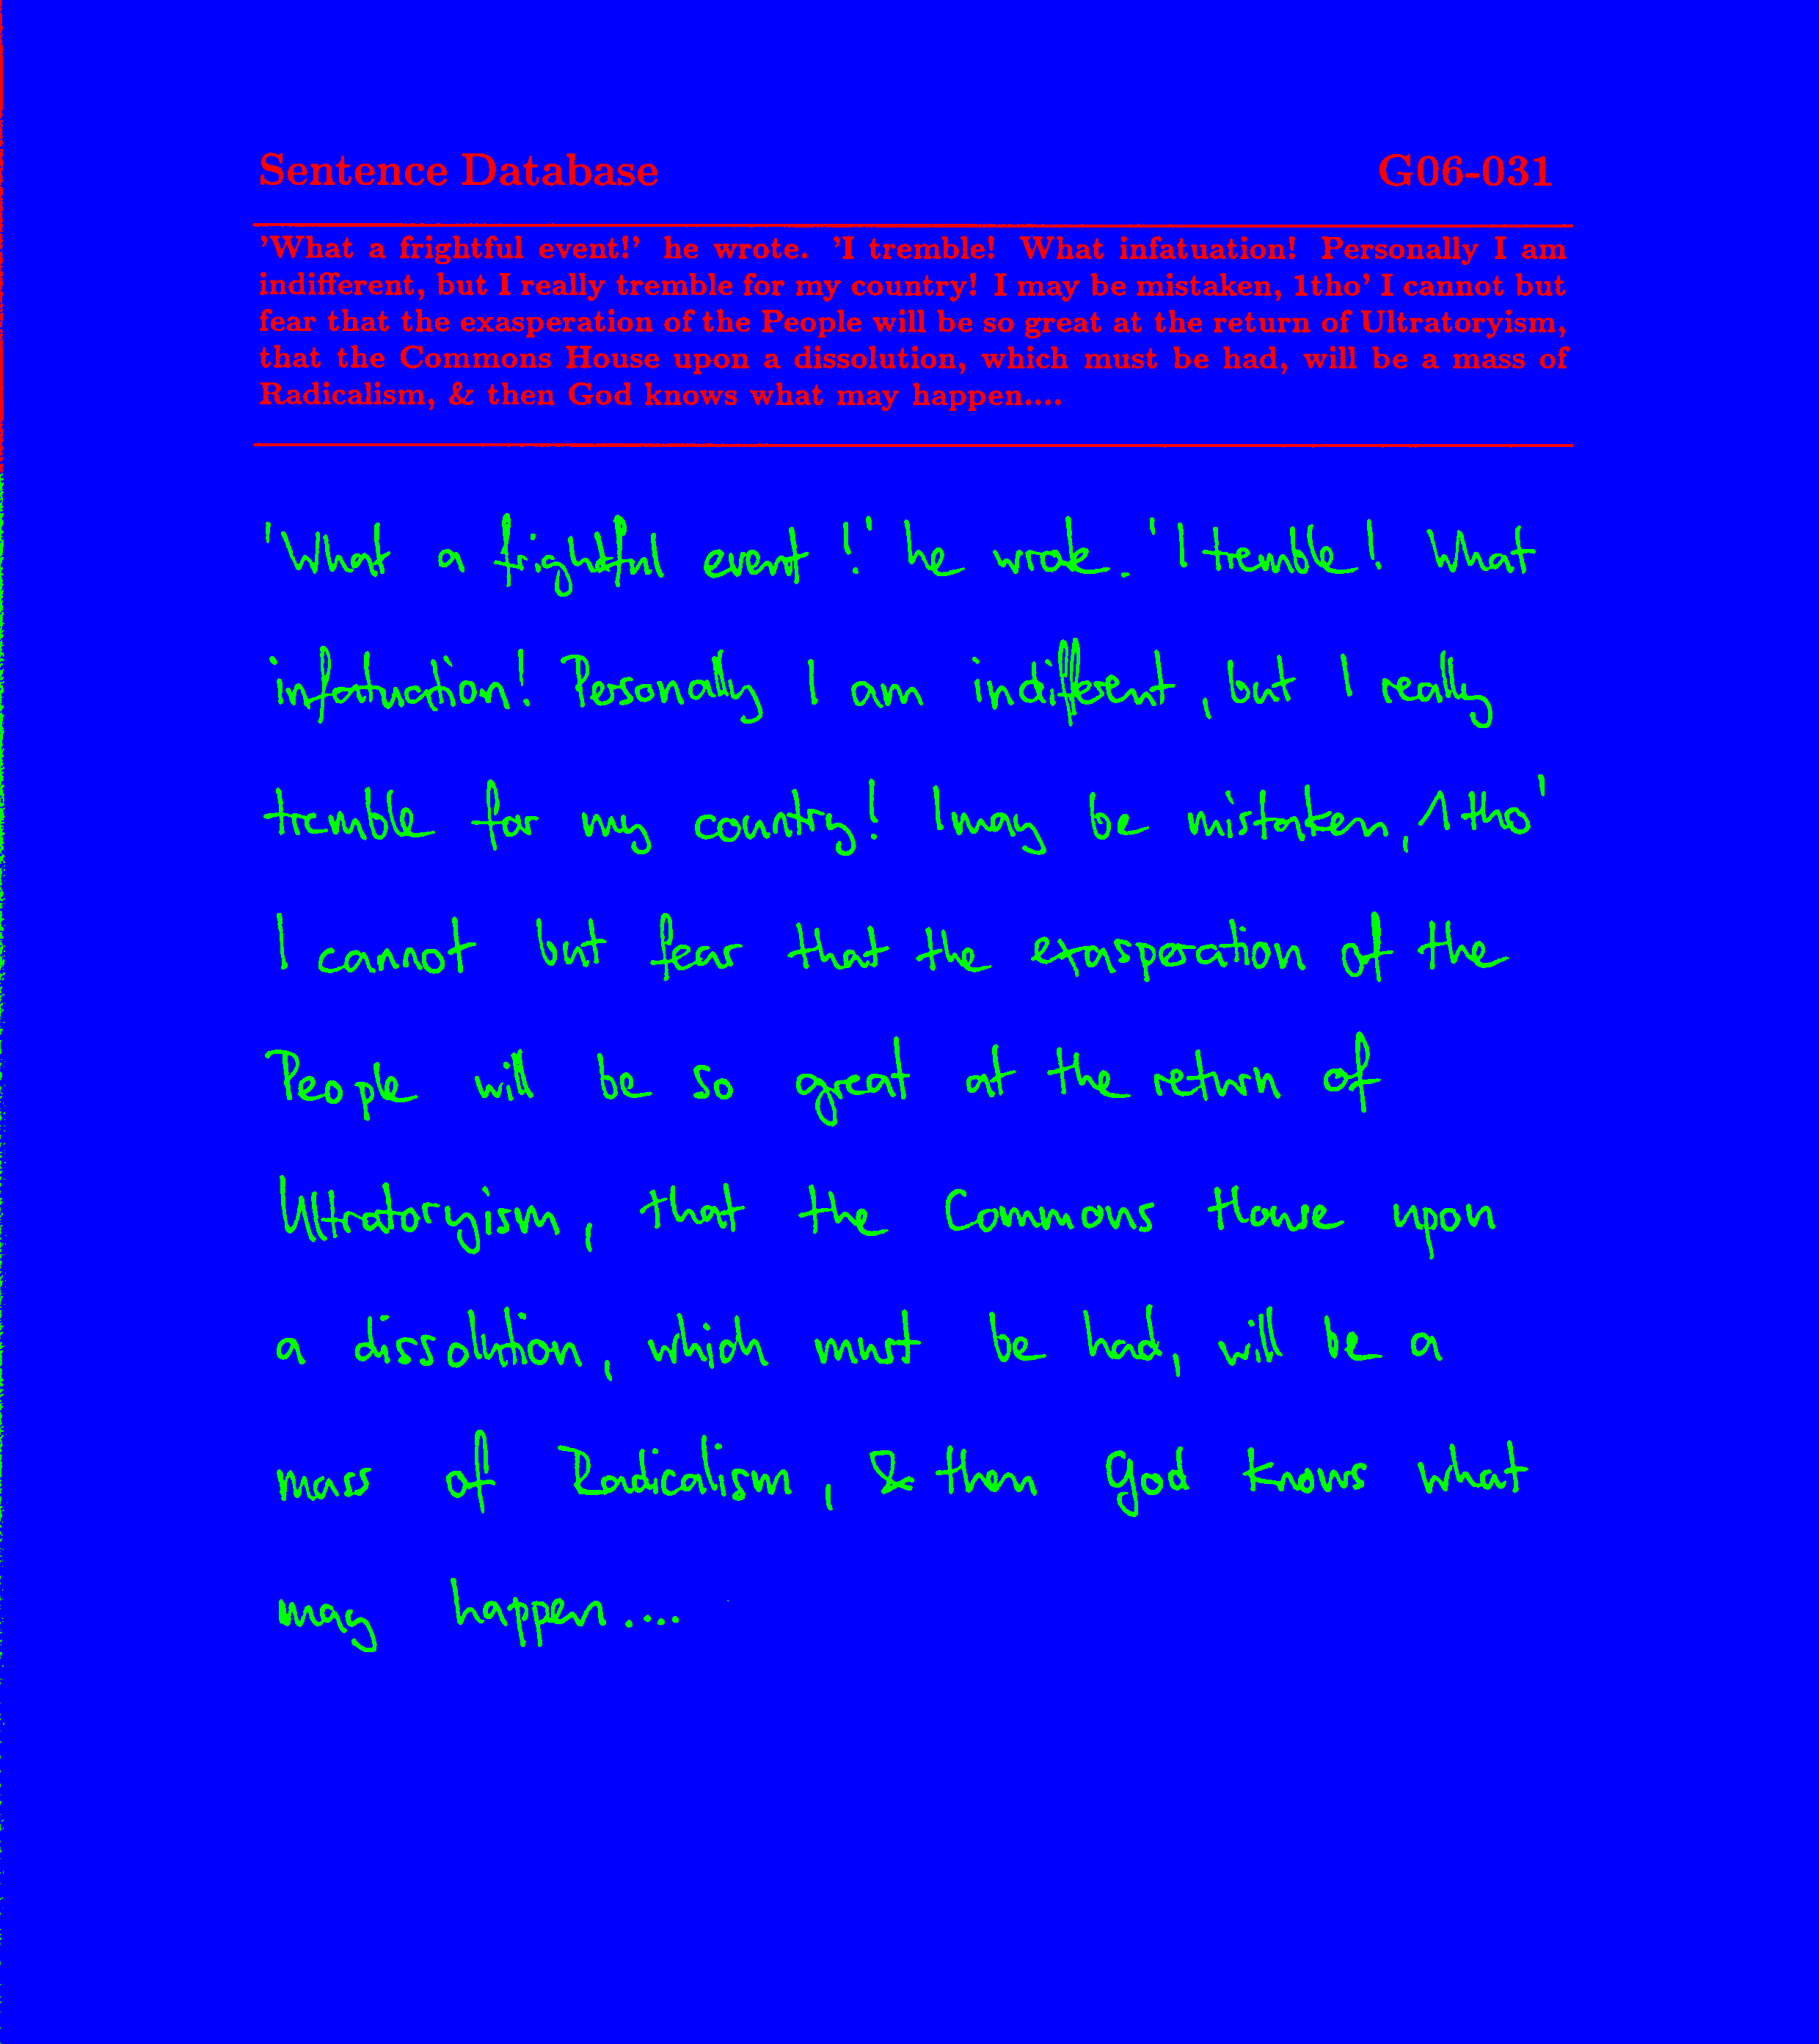 Sentence Database G06-031
'What a frightful event!' he wrote. 'I tremble! What infatuation! Personally I am
indifferent, but I really tremble for my country! I may be mistaken, 1tho' I cannot but
fear that the exasperation of the People will be so great at the return of Ultratoryism,
that the Commons House upon a dissolution, which must be had, will be a mass of
Radicalism, & then God knows what may happen....
'What a frightful event!' he wrote. 'I tremble! What
infatuation! Personally I am indifferent, but I really
tremble for my country! I may be mistaken, 1tho'
I cannot but fear that the exasperation of the
People will be so great at the return of
Ultratoryism, that the Commons House upon
a dissolution, which must be had, will be a
mass of Radicalism, & then God knows what
may happen....